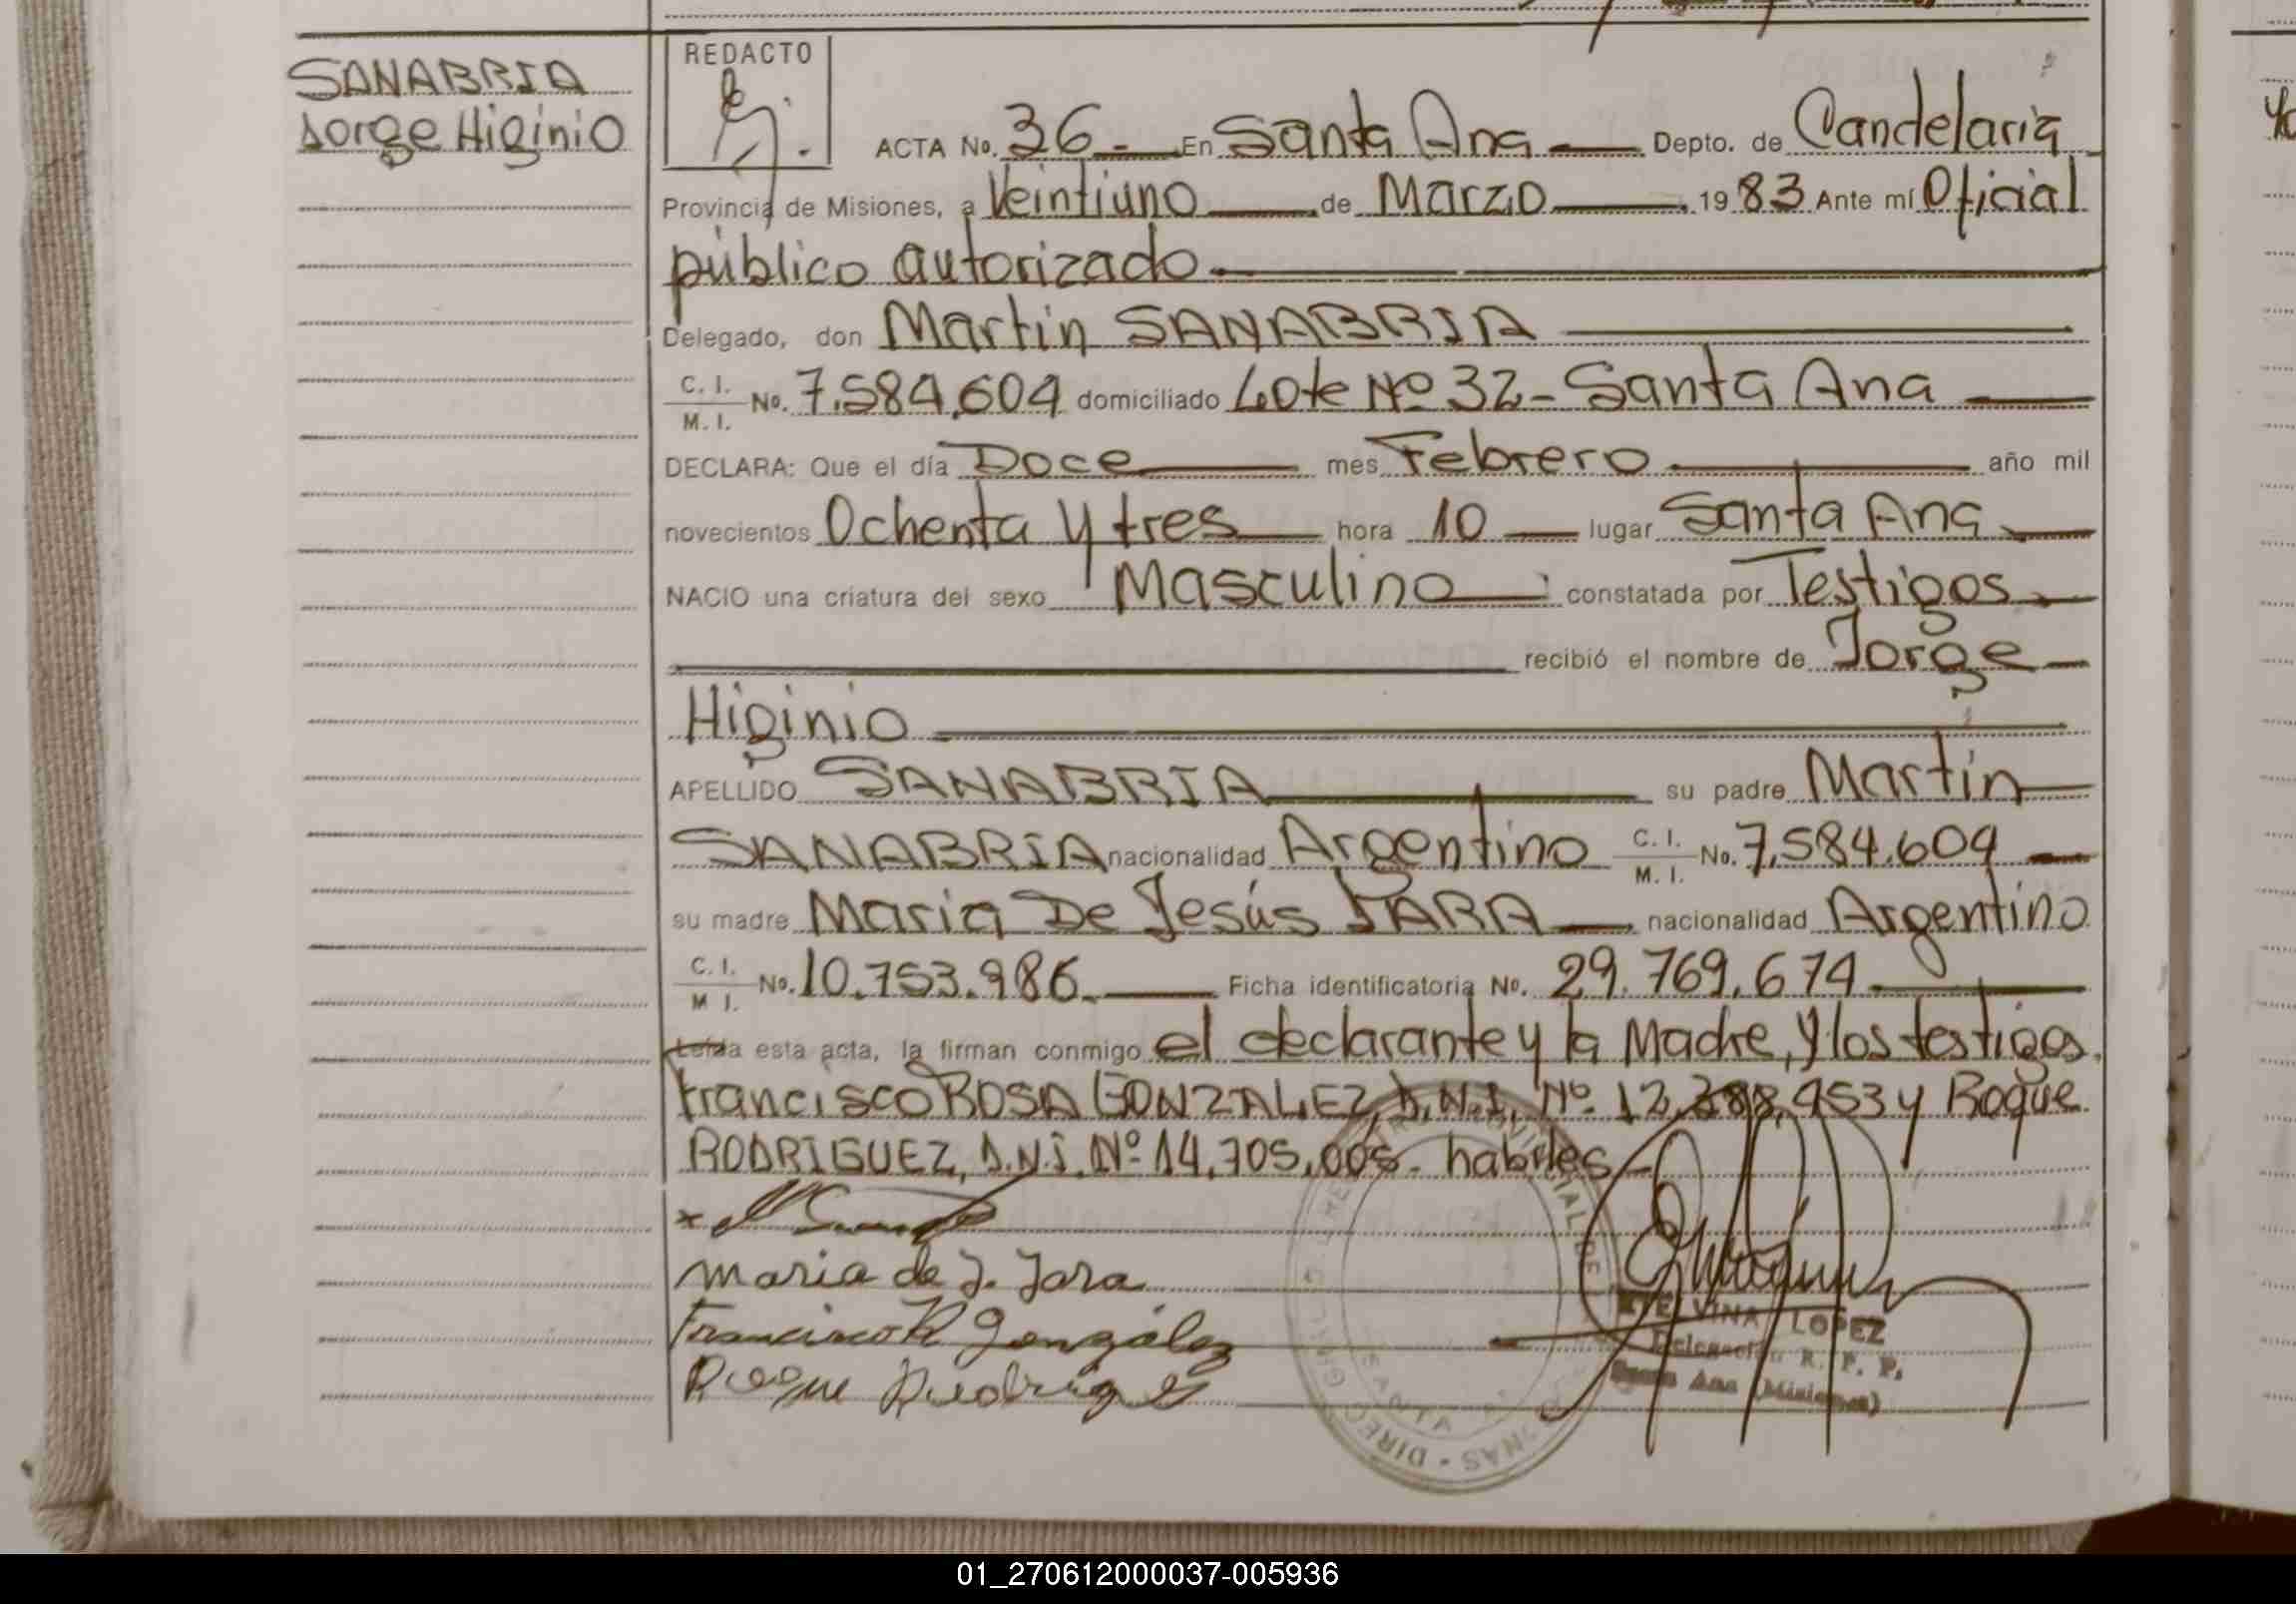 SANABRIA
Jorge Higinio
REDACTO
ACTA No. 36 En Santa Ana Depto. de Candelaria
Provincia de Misiones, a Veintiuno de Marzo 1983 Ante mí Oficial
público autorizado
Delegado, don Martin SANABRIA
C. I. / M. I. No. 7.584.604 domiciliado Lote Nº 32 - Santa Ana
DECLARA: Que el día Doce mes Febrero año mil
novecientos Ochenta y tres hora 10 lugar Santa Ana
NACIO una criatura del sexo Masculino constatada por Testigos
recibió el nombre de Jorge
Higinio
APELLIDO SANABRIA su padre Martin
SANABRIA nacionalidad Argentino C. I. / M. I. No. 7.584.604
su madre Maria De Jesús JARA nacionalidad Argentino
C. I. / M I. No. 10.753.986. Ficha identificatoria No. 29.769.674
Leída esta acta, la firman conmigo el declarante y la Madre, y los testigos.
Francisco ROSA GONZALEZ, D.N.I. Nº 12.388.953 y Roque
RODRIGUEZ, D.N.I. Nº 14.705.005. habiles
maria de J. Jara
Francisco R González
Roque Rodriguez
ETELVINA LOPEZ
Delegación R. P. P.
Santa Ana (Misiones)
01_270612000037-005936